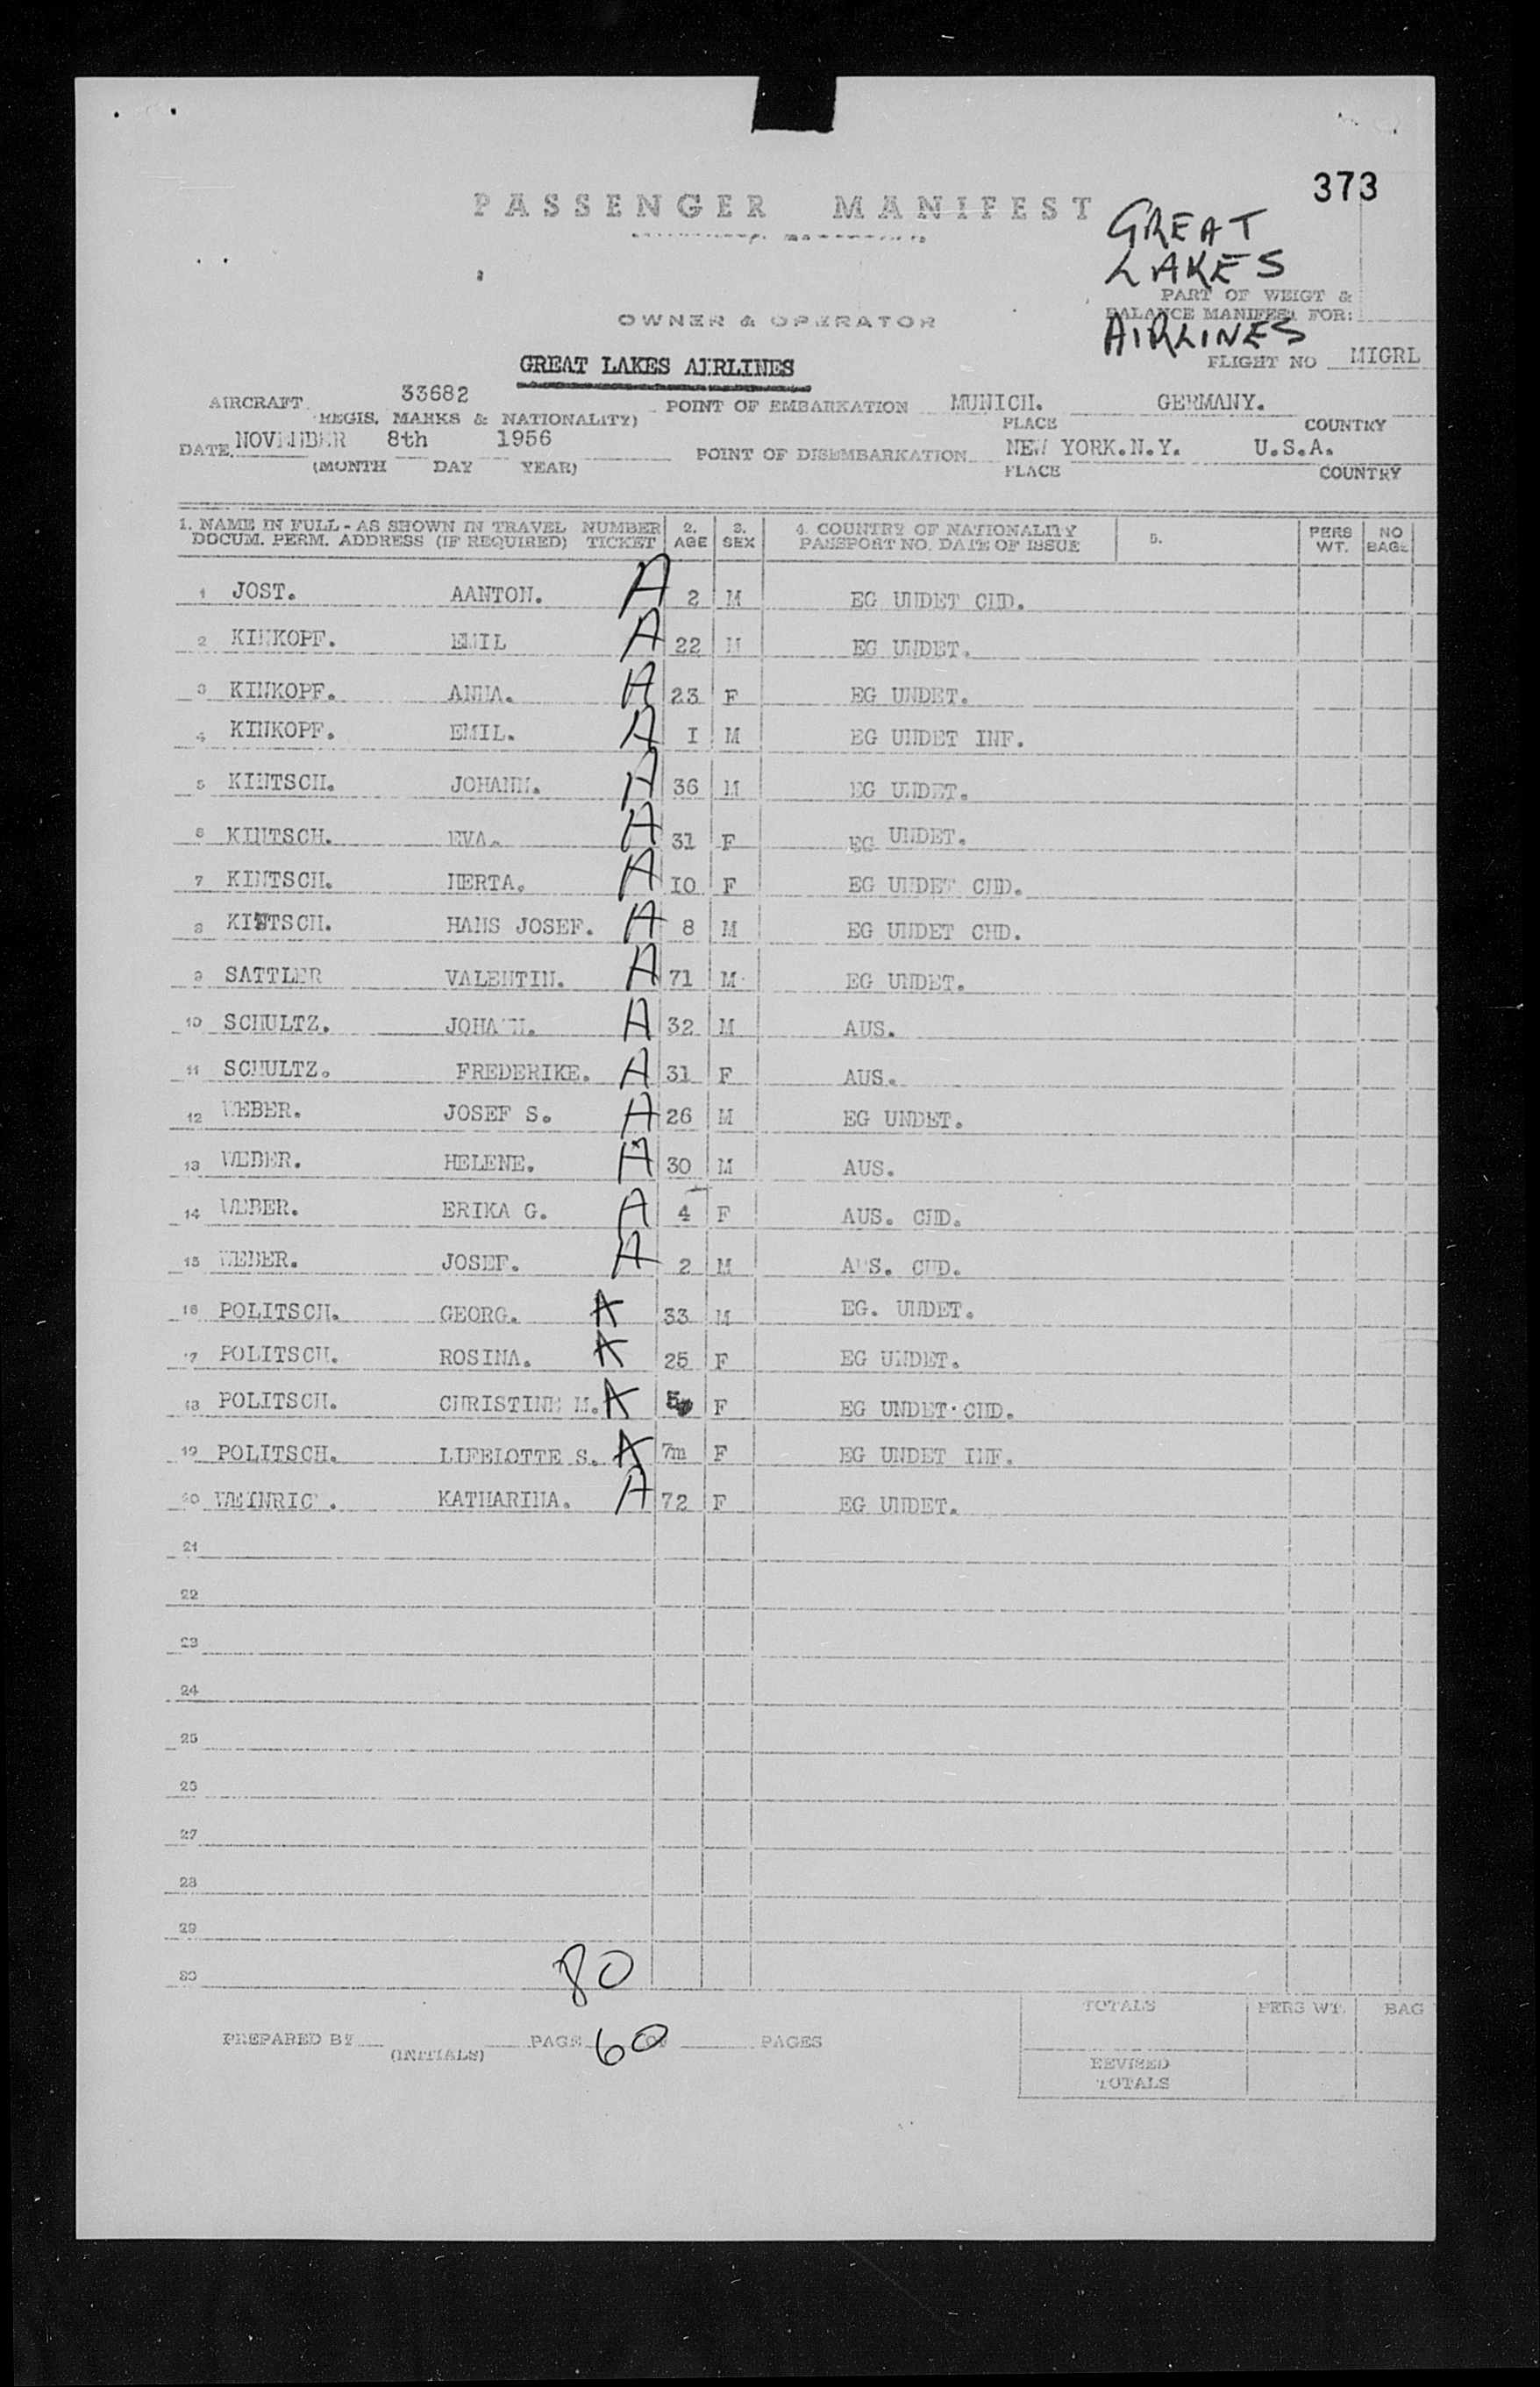 373
PASSENGER MANIFEST
GREAT
LAKES
PART OF WEIGT &
BALANCE MANIFEST FOR:
AIRLINES
OWNER & OPERATOR
GREAT LAKES AIRLINES
FLIGHT NO MIGRL
AIRCRAFT 33682 POINT OF EMBARKATION MUNICH. GERMANY.
REGIS. MARKS & NATIONALITY) PLACE COUNTRY
DATE NOVEMBER 8th 1956 POINT OF DISEMBARKATION NEW YORK.N.Y. U.S.A.
(MONTH DAY YEAR) PLACE COUNTRY
1. NAME IN FULL - AS SHOWN IN TRAVEL NUMBER 2. 3. 4. COUNTRY OF NATIONALITY 5. PERS NO
DOCUM. PERM. ADDRESS (IF REQUIRED) TICKET AGE SEX PASSPORT NO. DATE OF ISSUE WT. BAGE
1 JOST. AANTON. A 2 M EG UNDET CHD.
2 KINKOPF. EMIL A 22 M EG UNDET.
3 KINKOPF. ANNA. A 23 F EG UNDET.
4 KINKOPF. EMIL. A I M EG UNDET INF.
5 KINTSCH. JOHANN. A 36 M EG UNDET.
6 KINTSCH. EVA. A 31 F EG UNDET.
7 KINTSCH. HERTA. A IO F EG UNDET CHD.
8 KINTSCH. HANS JOSEF. A 8 M EG UNDET CHD.
9 SATTLER VALENTIN. A 71 M EG UNDET.
10 SCHULTZ. JOHANN. A 32 M AUS.
11 SCHULTZ. FREDERIKE. A 31 F AUS.
12 WEBER. JOSEF S. A 26 M EG UNDET.
13 WEBER. HELENE. A 30 M AUS.
14 WEBER. ERIKA G. A 4 F AUS. CHD.
15 WEBER. JOSEF. A 2 M AUS. CHD.
16 POLITSCH. GEORG. A 33 M EG. UNDET.
17 POLITSCH. ROSINA. A 25 F EG UNDET.
18 POLITSCH. CHRISTINE M. A 5 F EG UNDET CHD.
19 POLITSCH. LIFELOTTE S. A 7m F EG UNDET INF.
20 WEINRICH. KATHARINA. A 72 F EG UNDET.
21
22
23
24
25
26
27
28
29
30 80
TOTALS PERS WT. BAG
PREPARED BY PAGE 60 PAGES
(INITIALS)
REVISED
TOTALS